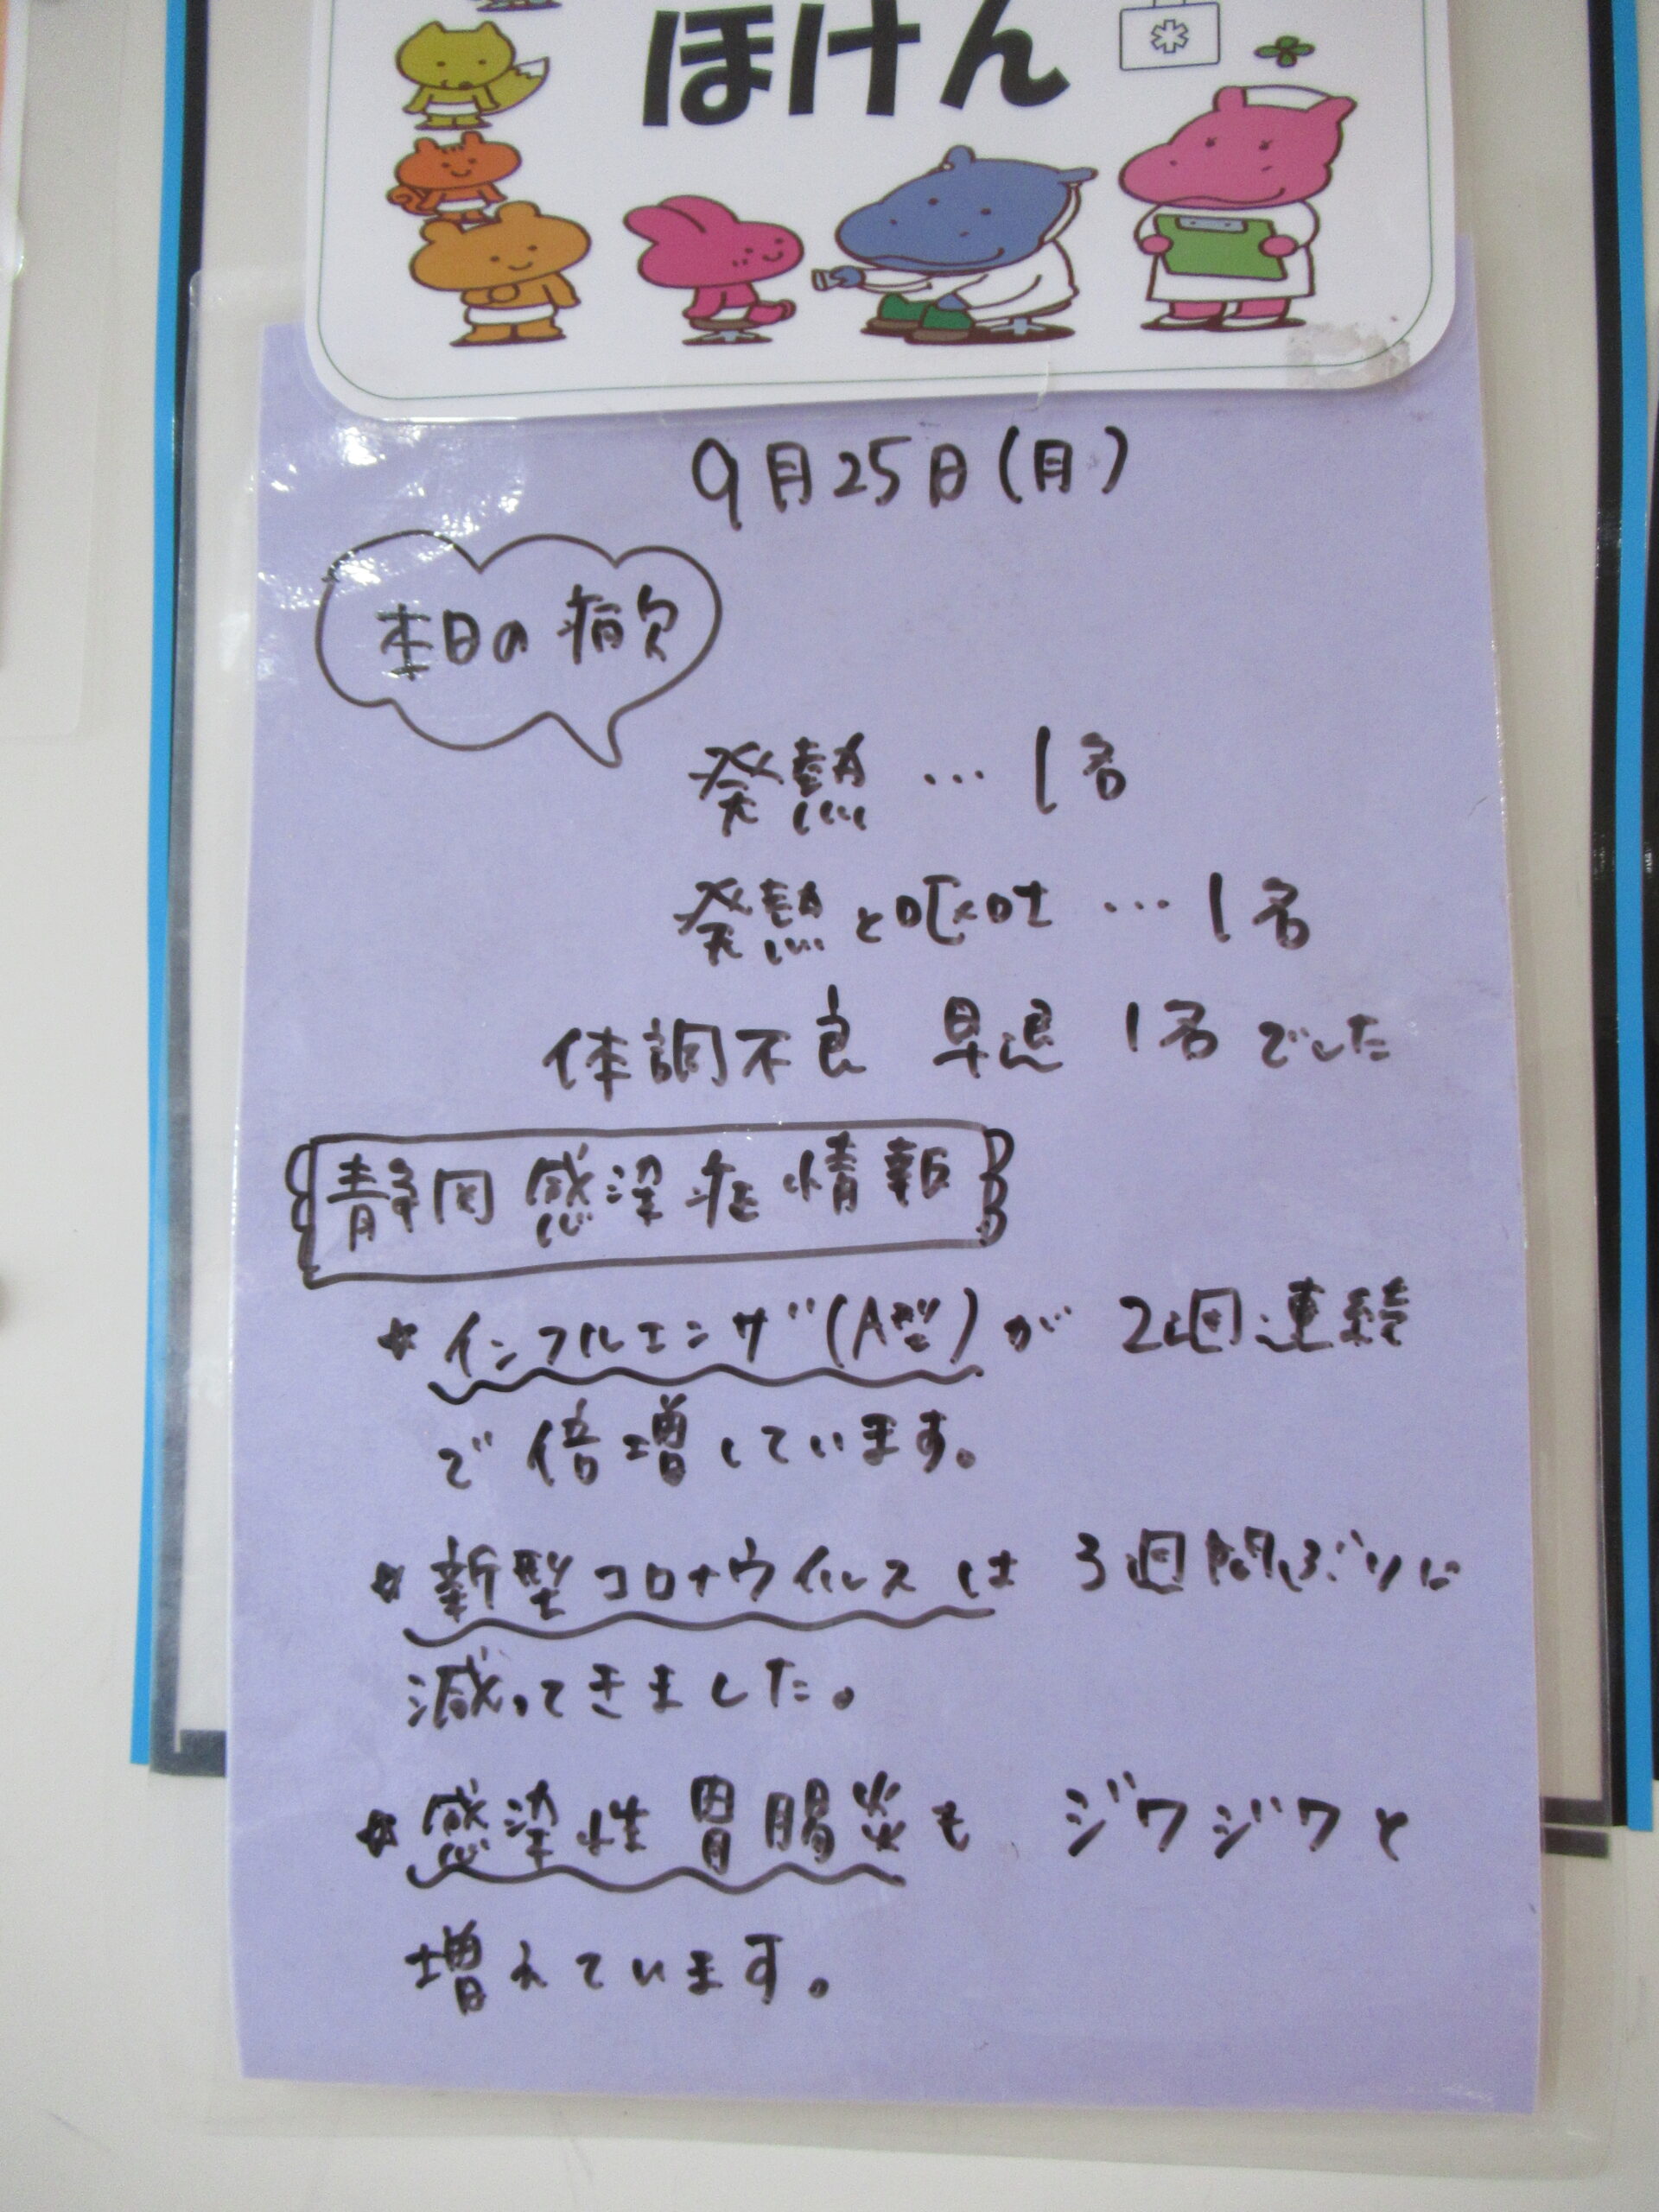 ほけん
9月25日(月)
本日の病欠
発熱…1名
発熱と嘔吐…1名
体調不良 早退 1名でした
静岡感染症情報
☆インフルエンザ(A型)が2週連続
で倍増しています。
☆新型コロナウイルスは3週間ぶりに
減ってきました。
☆感染性胃腸炎もジワジワと
増えています。